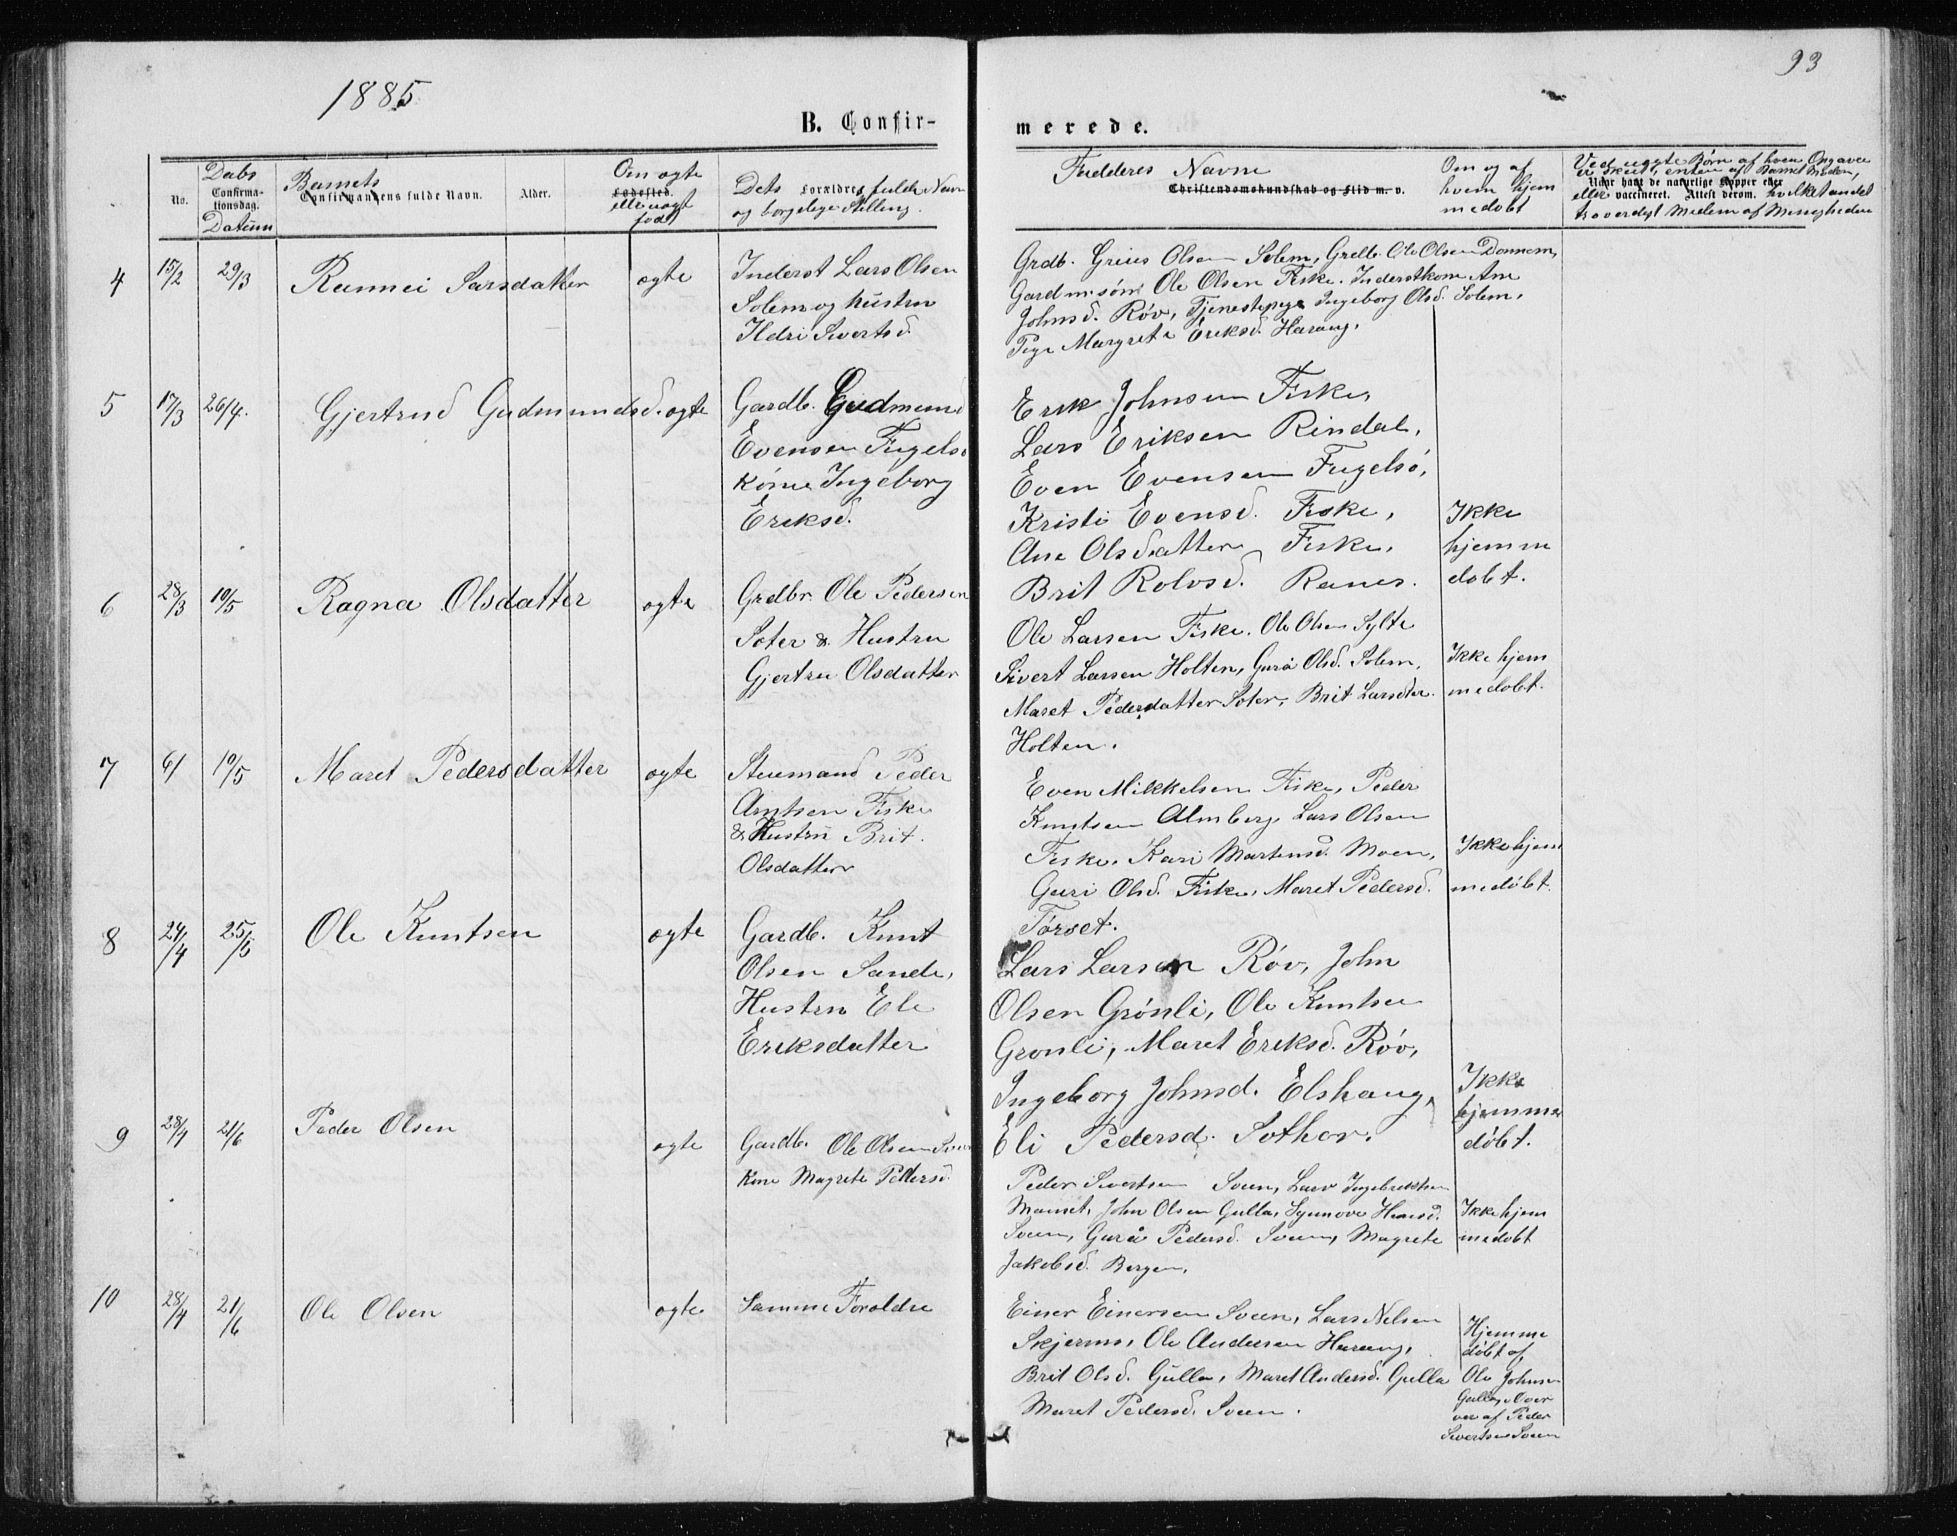 1885
93
B. Confir-
merede.
No.
Dabs
Confirma-
tionsdag.
Datum
Barnets
Confirmandens fulde Navn.
Alder.
Om ægte
Fødested.
eller uægt
født
Dets Forældres fulde Navn
og borgelige Stilling.
Fadderes Navne
Christendomskundskab og Flid m. v.
Om og af
hvem hjem
medøbt
Ved uægte Børn af hven Opgaven
er skeet, enten af Barnets Moder,
Naar havt de naturlige Kopper eller
eller vaccineret. Attest derom. hvilket andet
troverdigt Medlem af Menigheden
4
15/2
29/3
Rannei Larsdatter
ægte
Inderst Lars Olsen
Solem og hustru
Ildri Sivertsd
Grdb. Olsen Solem, Grdb. Ole Olsen Donnem,
Gardmsøn Ole Olsen Fiske. Inderstkone Ane
Johnsd. Røv, Tjenestepige Ingeborg Olsd. Solem,
Pige Margrete Eriksd. Harang.
5
17/3
26/4.
Gjertrud Gudmundsd.
ægte
Gardb. Gudmund
Evensen Fugelsø
Kone Ingeborg
Eriksd.
Erik Johnsen Fiske,
Lars Eriksen Rindal,
Even Evensen Fugelsø,
Kristi Evensd. Fiske,
Ane Olsdatter Fiske,
Brit Rolvsd. Ranes.
Ikke
hjemme
døbt.
6
28/3
10/5
Ragna Olsdatter
ægte
Grdbr. Ole Pedersen
Soter & Hustru
Gjertru Olsdatter
Ole Larsen Fiske. Ole Olsen Sylte
Sivert Larsen Holten, Gurå Olsd. Solem,
Maret Pedersdatter Soter, Brit Larsdter.
Holten.
Ikke hjem
medøbt.
7
6/
10/5
Maret Pedersdatter
ægte
Steumand Peder
Arntsen Fiske
& Hustru Brit
Olsdatter
Even Mikkelsen Fiske, Peder
Knutsen Almberg, Lars Olsen
Fiske. Kari Martensd. Moen,
Guri Olsd. Fiske, Maret Pedersd.
Tørset.
Ikke hjem
medøbt.
8
24/4
25/5
Ole Knutsen
ægte
Gardb. Knut
Olsen Sande,
Hustru Eli
Eriksdatter
Lars Larsen Røv, John
Olsen Grønli, Ole Knutsen
Grønli, Maret Eriksd. Røv,
Ingeborg Johnsd. Elshaug,
Eli Pedersd. Sother.
Ikke
hjemme
døbt.
9
28/4
21/6
Peder Olsen
ægte
Gardb. Ole Olsen
Kone Magrete Pedersd
Peder Sivertsen Sveen, Lars Ingebriktsen
Mauset, John Olsen Gulla, Synnove Hansd.
Sveen, Gurå Pedersd. Sveen, Magrete
Jakobsd. Bergen.
Ikke hjem
medøbt
10
28/4
21/6
Ole Olsen
ægte
Samme Foraldre
Einer Einersen Sveen, Lars Nelsen
Skjermo, Ole Andersen Harang,
Brit Olsd. Gulla, Maret Andersd. Gulla
Maret Pedersd. Sveen.
Hjemme
døbt af
Ole Johnsen
Gulla,
ver af Peder
Sivertsen Sveen